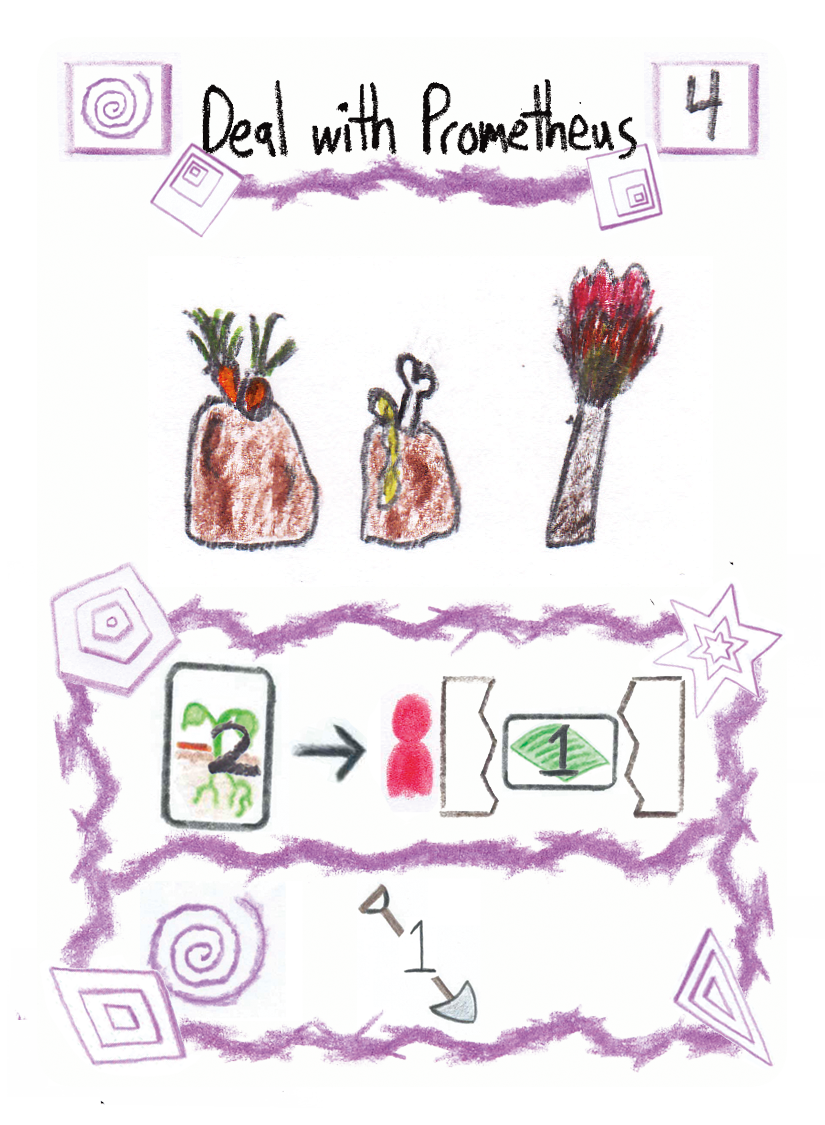 Deal with Prometheus
4
-2
1
1